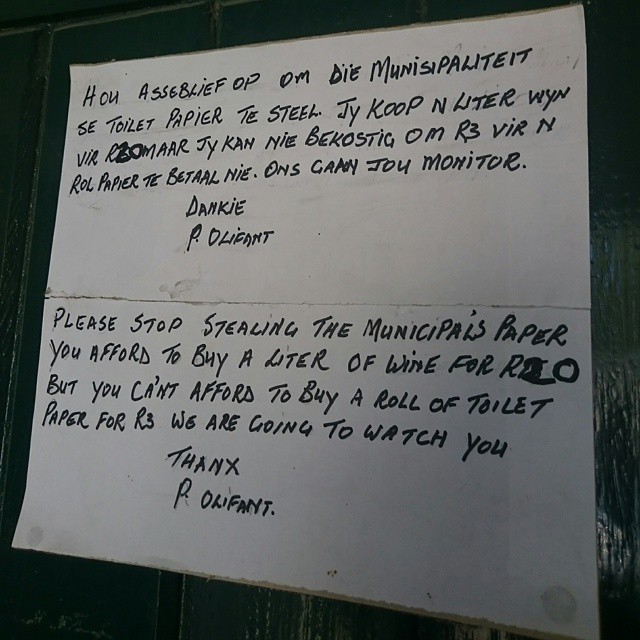 HOU ASSEBLIEF OP OM DIE MUNISIPALITEIT
SE TOILET PAPIER TE STEEL. JY KOOP N LITER WYN
VIR R20 MAAR JY KAN NIE BEKOSTIG OM R3 VIR N
ROL PAPIER TE BETAAL NIE. ONS GAAN JOU MONITOR.
DANKIE
P. OLIFANT
PLEASE STOP STEALING THE MUNICIPAL'S PAPER
YOU AFFORD TO BUY A LITER OF WINE FOR R20
BUT YOU CA'NT AFFORD TO BUY A ROLL OF TOILET
PAPER FOR R3 WE ARE GOING TO WATCH YOU
THANX
P. OLIFANT.